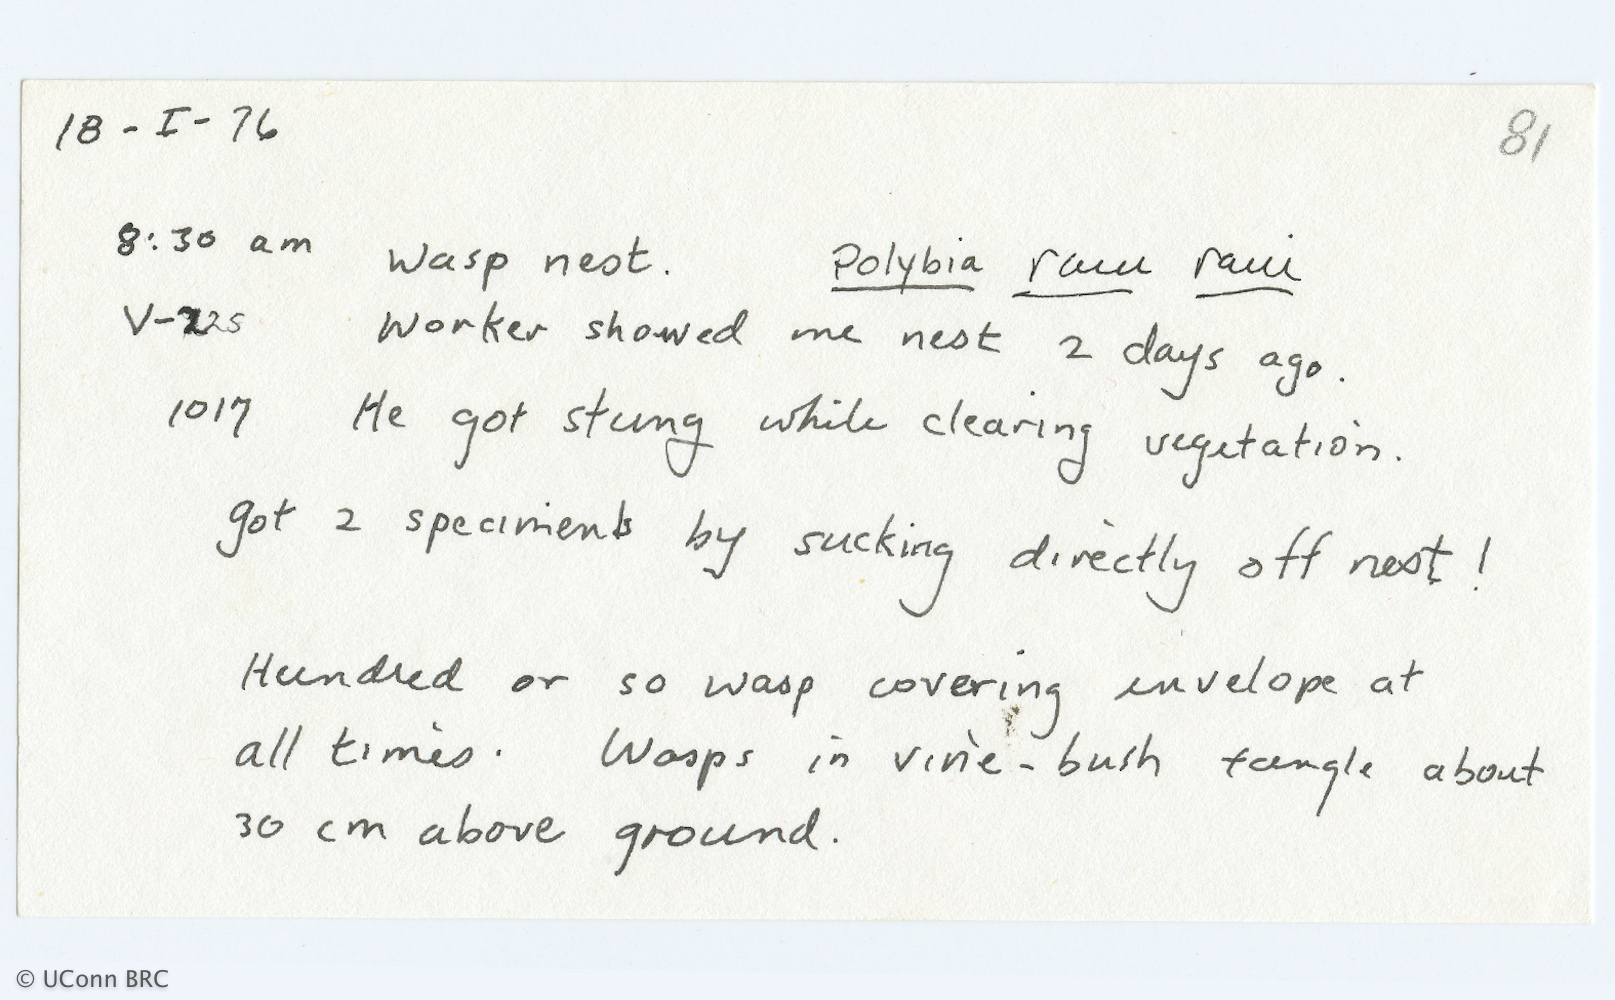 18-I-76
81
8:30 am Wasp nest. Polybia raui raui
V-225 Worker showed me nest 2 days ago.
1017 He got stung while clearing vegetation.
got 2 specimens by sucking directly off nest!
Hundred or so wasp covering envelope at
all times. Wasps in vine-bush tangle about
30 cm above ground.
© UConn BRC